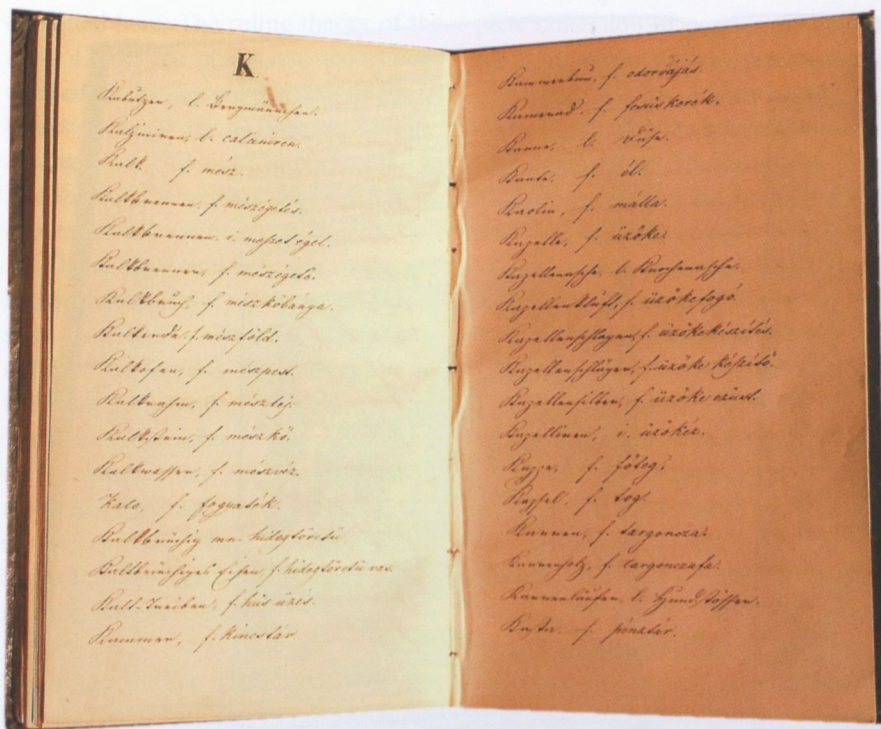 K
Kabützen, l. Bergmännchen.
Kalziniren, l. calciniren.
Kalk f. mész.
Kalkbrennen, f. mészégetés.
Kalkbrennen. i. meszet éget.
Kalkbrenner, f. mészégető.
Kalkbruch, f. mészkőbánya.
Kalkerde, f. mészföld.
Kalkofen, f. mészpest.
Kalkrahm, f. mésztej.
Kalkstein, f. mészkő.
Kalkwasser, f. mészvíz.
Kalo, f. fogyaték.
Kaltbrüchig mn. hidegtöretü
Kaltbrüchiges Eisen, f. hidegtöretü vas.
Kalt-Treiben, f. hüs üzés.
Kammer, f. kincstár
Kammerbau, f. odorvájás.
Kamerad. f.
Kanne, l.
Kante, f. él.
Kaolin, f. málla.
Kapelle, f. üzőke.
Kapellenasche, l. Knochenasche.
Kapellenkluft, f. üzőkefogó.
Kapellenschlagen, f. üzőkekészítés.
Kapellenschläger, f. üzőke készítő.
Kapellensilber, f. üzőke ezüst.
Kapelliren, i. üzőkez.
Kappe, f. főteg.
Kapsel, f. tog.
Karren, f. targoncza.
Karrenholz, f. targonczafa.
Karrenläufer, l. Hundstösser.
Kasta. f. pénztár.